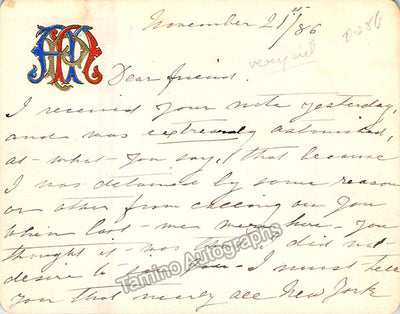 November 21st/86
8-286
very
Dear friend.
I received your note yesterday,
and was extremely astonished,
at what you say, (that because
I was detained by some reason
or other from calling on you
when last - were here - you
thought it was that I did not
desire to see you - I must tell
you that nearly all New York
Tamino Autographs